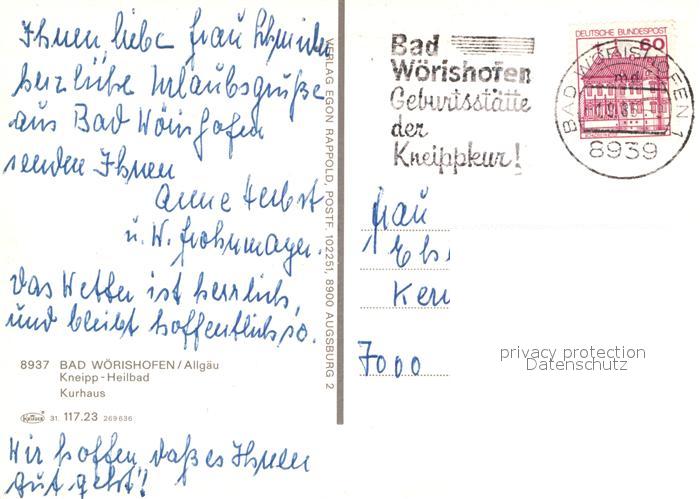 Ihnen, liebe Frau Schneider
herzliche Urlaubsgrüße
aus Bad Wörishofen
senden Ihnen
Anne Herbst
u. W. Frohnmayer.
Das Wetter ist herrlich,
und bleibt hoffentlich so.
8937 BAD WÖRISHOFEN / Allgäu
Kneipp-Heilbad
Kurhaus
Krüger 31. 117.23 269636
Wir hoffen, daß es Ihnen
gut geht!
VERLAG EGON RAPPOLD, POSTF. 102251, 8900 AUGSBURG 2
Bad
Wörishofen
Geburtsstätte
der
Kneippkur!
DEUTSCHE BUNDESPOST
60
BAD WÖRISHOFEN 1
8939
Frau
7000
privacy protection
Datenschutz